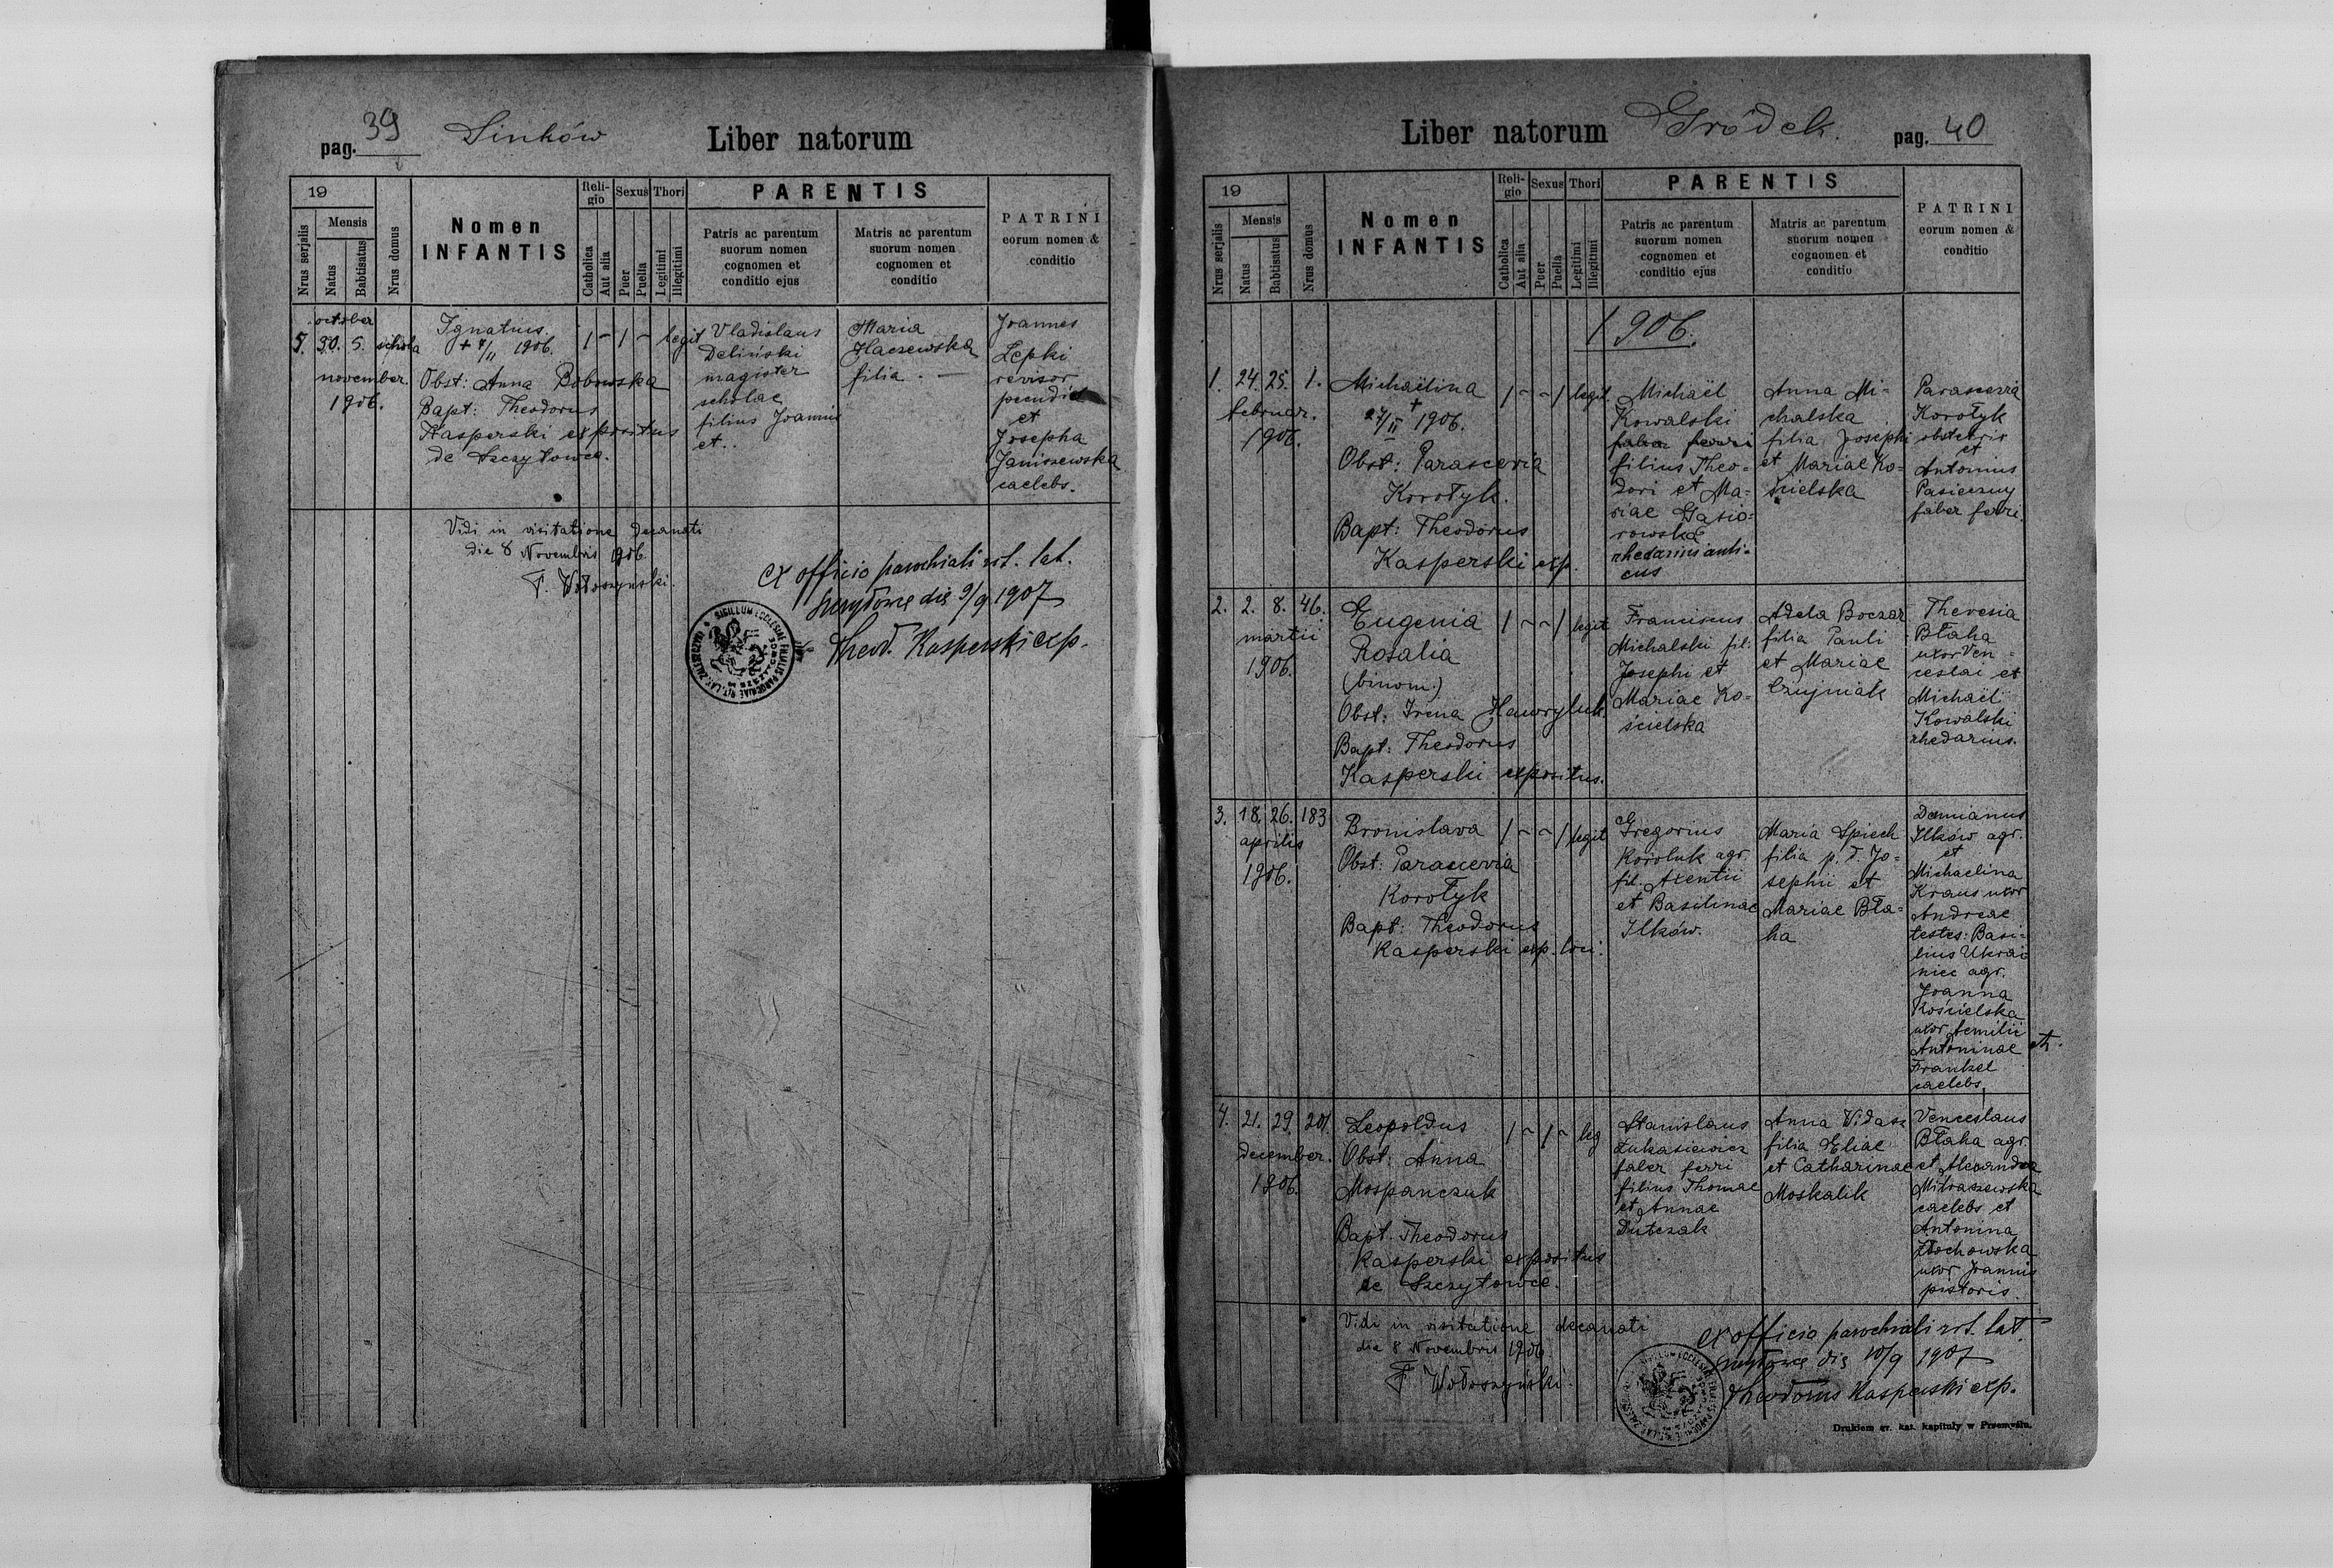 pag. 39 Sinków Liber natorum
19
Nrus serjalis
Mensis
Natus
Babtisatus
Nrus domus
Nomen
INFANTIS
Reli-
gio
Catholica
Aut alia
Sexus
Puer
Puella
Thori
Legitimi
Illegitimi
PARENTIS
Patris ac parentum
suorum nomen
cognomen et
conditio ejus
Matris ac parentum
suorum nomen
cognomen et
conditio
PATRINI
eorum nomen &
conditio
5.
october
30. 5.
november.
1906.
schola
Ignatius
+ 7/11 1906.
Obst: Anna Bobowska
Bapt: Theodorus
Kasperski expositus
de Szczytowce.
1 - 1 - legit
Vladislaus
Deliński
magister
scholae
filius Joannis
et..
Maria
Haczewska
filia . —
Joannes
Lepki
revisor
et
Josepha
Janiszewska
caelebs.
Vidi in visitatione Decanati
die 8 Novembris 1906
F. Wołoszyński.
ex officio parochiali rit. lat.
Szczytowce die 9/9 1907
Theod. Kasperski exp.
Liber natorum Gródek. pag. 40
19
Nrus serjalis
Mensis
Natus
Babtisatus
Nrus domus
Nomen
INFANTIS
Reli-
gio
Catholica
Aut alia
Sexus
Puer
Puella
Thori
Legitimi
Illegitimi
PARENTIS
Patris ac parentum
suorum nomen
cognomen et
conditio ejus
Matris ac parentum
suorum nomen
cognomen et
conditio
PATRINI
eorum nomen &
conditio
1906.
1. 24. 25. 1.
februar.
1906.
Michaëlina
+
27/II 1906.
Obst: Parascevia
Korotyk.
Bapt: Theodorus
Kasperski exp.
1 - - 1 legit
Michaël
Kowalski
faber ferri
filius Theo-
dori et Ma-
riae Gasio-
rowska
Anna Mi-
chalska
filia Josephi
et Mariae Ko-
ścielska
Parascevia
Korotyk
obstetrix
et
Antonius
Pasieczny
faber ferri.
2. 2. 8. 46.
martii
1906.
Eugenia
Rosalia
(binom.)
Obst: Irena Hawryluk.
Bapt: Theodorus
Kasperski expositus.
1 - - 1 legit
Franciscus
Michalski fil.
Josephi et
Mariae Ko-
ścielska
Adela Boczar
filia Pauli
et Mariae
Czujniak
Theresia
Błaha
uxor Ven-
ceslai et
Michaël
Kowalski
rhedarius.
3. 18. 26. 183
aprilis
1906.
Bronislava
Obst: Parascevia
Korotyk
Bapt: Theodorus
Kasperski exp. loci.
1 - - 1 legit
Gregorius
Koroluk agr.
fil. Axentii
et Basilinae
Ilków.
Maria Spiech
filia p. d. Jo-
sephii et
Mariae Bła-
ha
Damianus
Ilków agr.
et
Michaelina
Kraus uxor
Andreae
testes: Basi-
lius Ukrai-
niec agr.
Joanna
Kościelska
uxor Aemilii et
Antoninae
Frankel
caelebs
4. 21. 29. 201.
december.
1906.
Leopoldus
Obst: Anna
Mospanczuk
Bapt. Theodorus
Kasperski expositus
de Szczytowce.
1 - 1 - leg
Stanislaus
Łukasiewicz
faber ferri
filius Thomae
et Annae
Dutczak
Anna Vidasz
filia Eliae
et Catharinae
Moskalik
Venceslaus
Błaha agr.
et Alexandra
Mitraszewska
caelebs et
Antonina
Złochowska
uxor Joannis
pistoris.
Vidi in visitatione decanati
die 8 Novembris 1906
F. Wołoszyński.
ex officio parochiali rit. lat.
Szczytowce die 10/9 1907
Theodorus Kasperski exp.
Drukiem gr. kat. kapituły w Przemyślu.